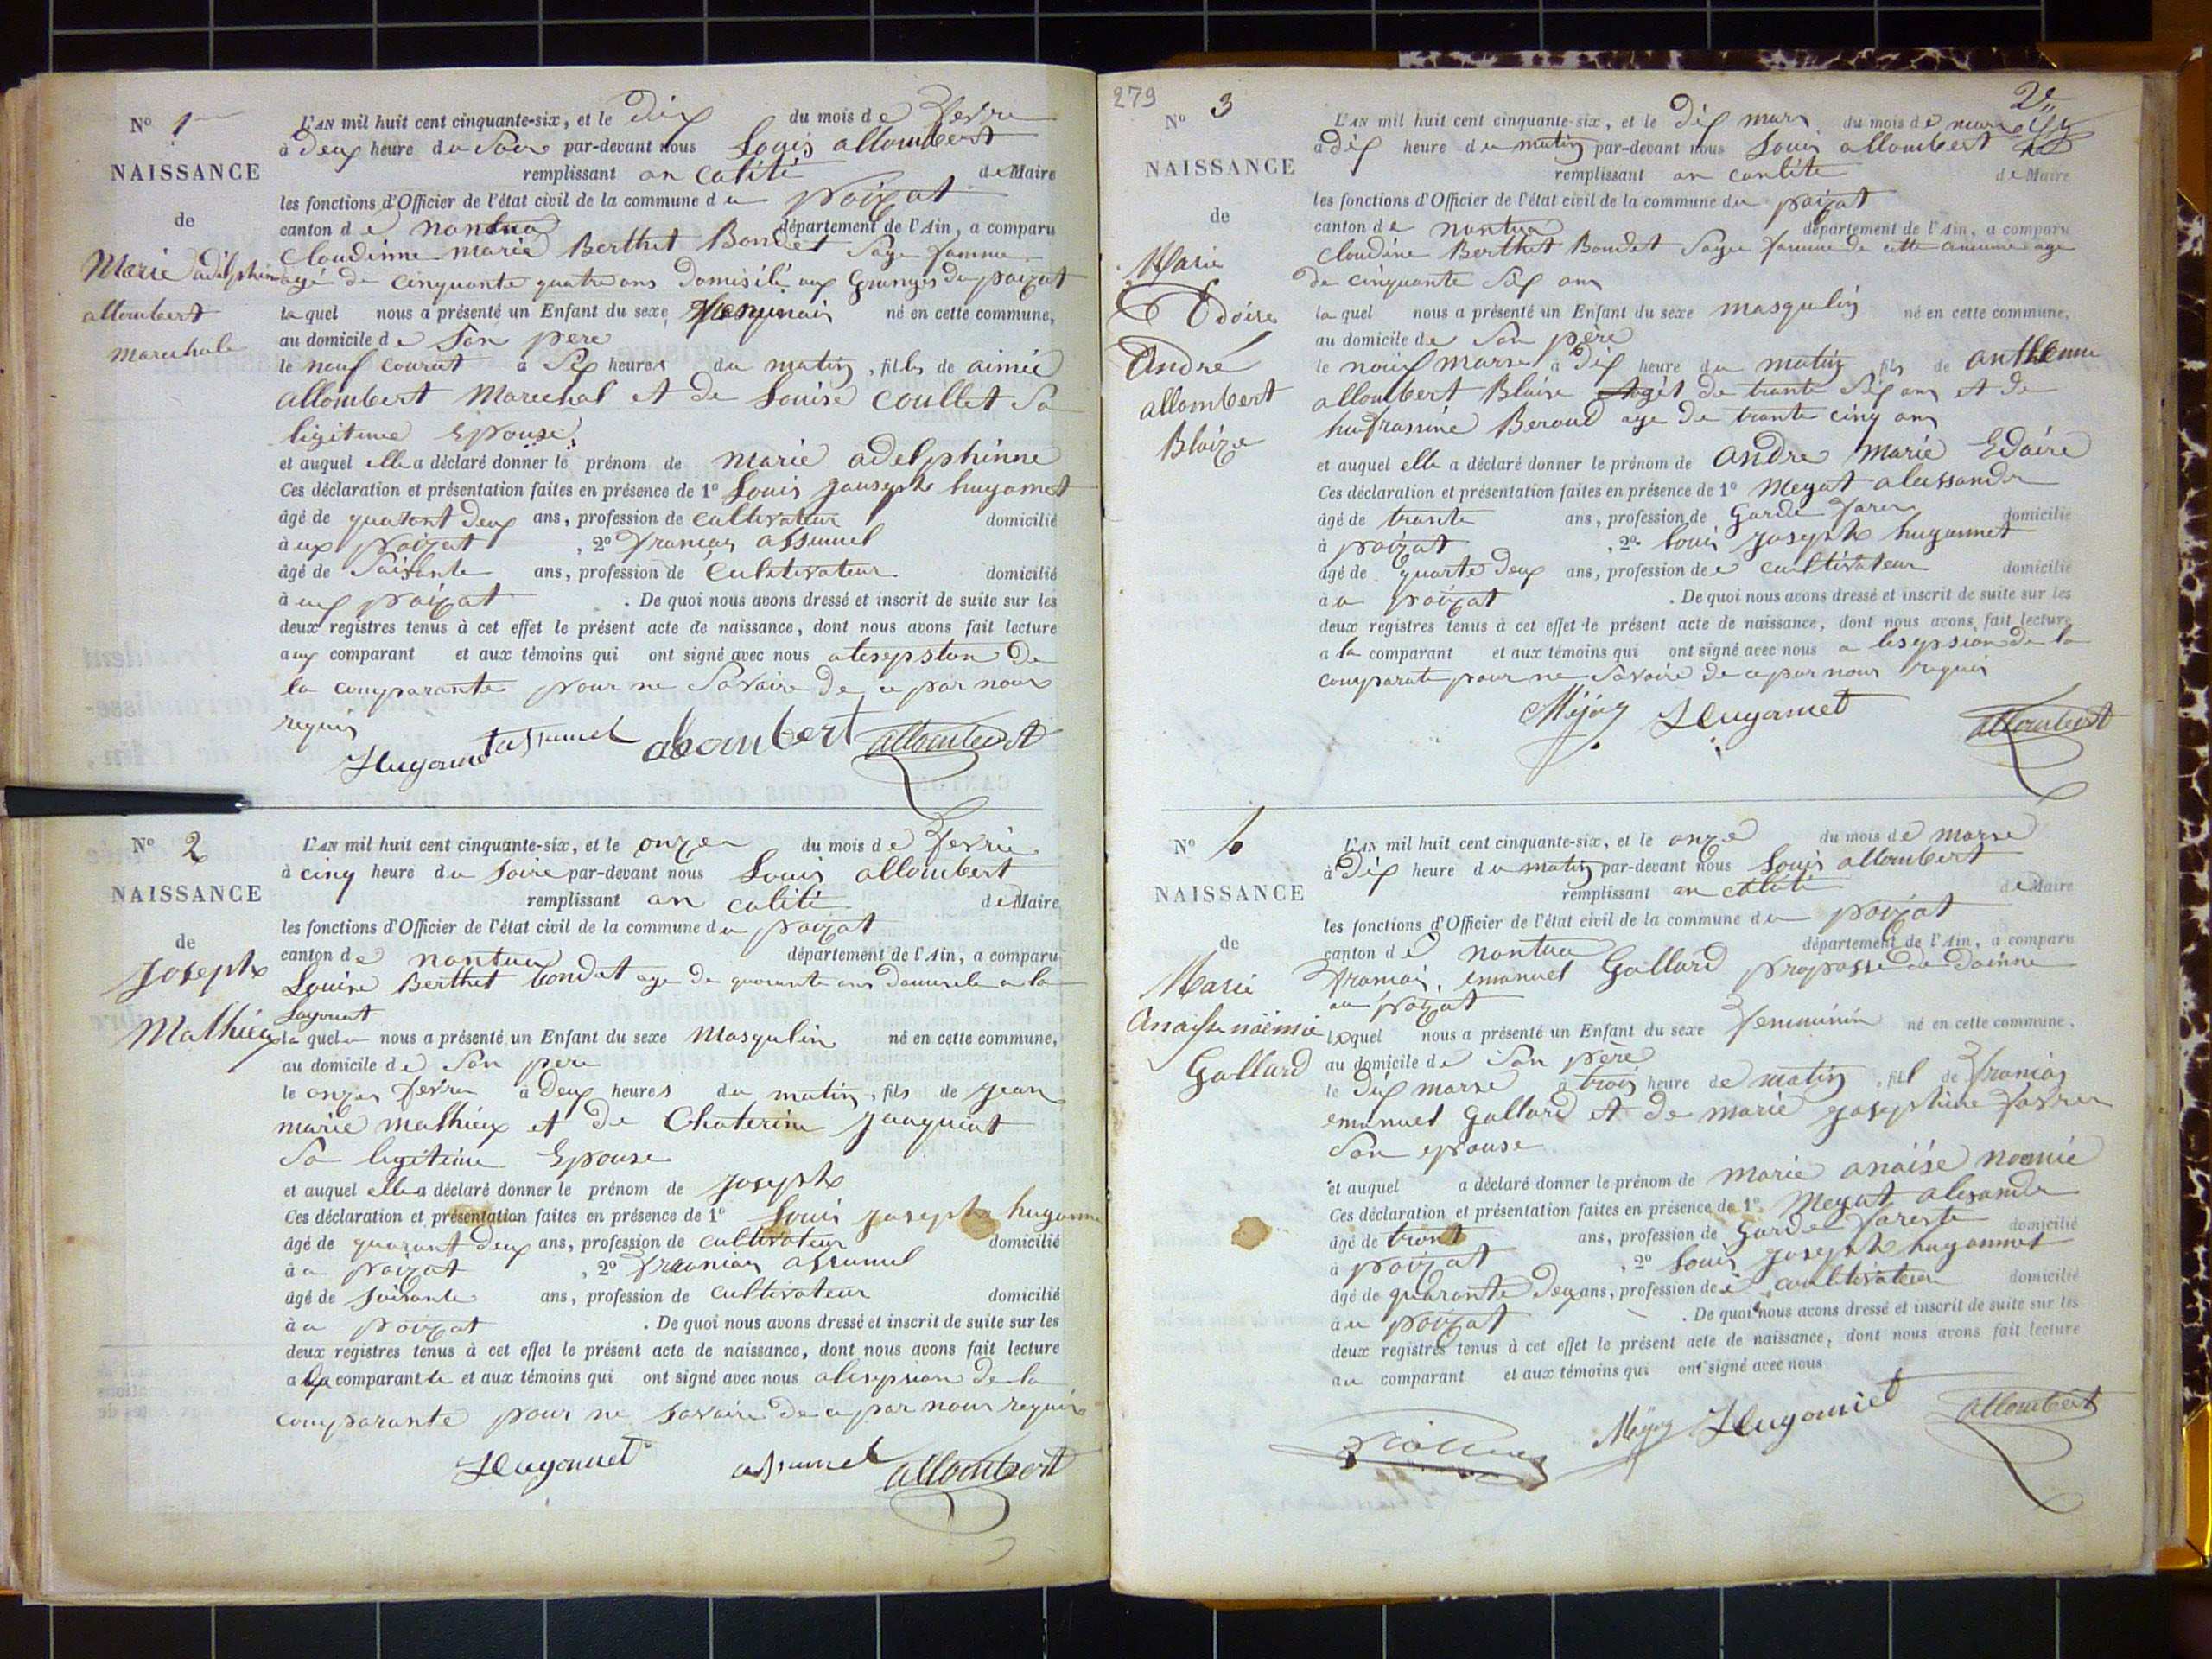 N° 1
NAISSANCE
de
Marie adelphin
allombert
marechale
L'AN mil huit cent cinquante-six, et le Dix du mois de fevrie
à Deux heure du Soire par-devant nous Louis allombert
remplissant an calité de Maire
les fonctions d'Officier de l'état civil de la commune du poizat
canton de nantua département de l'Ain, a comparu
Claudinne marie Berthet Bondet Sage famme
agé de cinquante quatre ans Domisilé aux Granges du poizat
laquel nous a présenté un Enfant du sexe né en cette commune,
au domicile de Son pere
le neuf courat à Six heures du matin, fille de aimée
allombert Marechal et de Louise Coullet Sa
ligitime Epouse
et auquel elle a déclaré donner le prénom de Marie adelphinne
Ces déclaration et présentation faites en présence de 1° Louis Jouseph hugonnet
âgé de quarant Deux ans, profession de Cultivateur domicilié
à ux poizat, 2° francois assumel
âgé de Soisante ans, profession de Cultivateur domicilié
à ux poizat. De quoi nous avons dressé et inscrit de suite sur les
deux registres tenus à cet effet le présent acte de naissance, dont nous avons fait lecture
aux comparant et aux témoins qui ont signé avec nous alesepston de
la comparante pour ne Savoire de ce par nous
requis
Hugonnet assumel alombert allombert
N° 2
NAISSANCE
de
Joseph
Mathieux
L'AN mil huit cent cinquante-six, et le onze du mois de fevrie
à cinq heure du Soire par-devant nous Louis allombert
remplissant an calité de Maire
les fonctions d'Officier de l'état civil de la commune du poizat
canton de nantua département de l'Ain, a comparu
Louise Berthet bondet age de quarante ans
laquel nous a présenté un Enfant du sexe Masqulin né en cette commune,
au domicile de Son pere
le onze fevrie à Deux heures du matin, fils de Jean
marie mathieux et de Chaterine Jauquiat
Sa legitime Epouse
et auquel elle a déclaré donner le prénom de Joseph
Ces déclaration et présentation faites en présence de 1° Louis Joseph hugonne
âgé de quarant Deux ans, profession de Cultivateur domicilié
à a poizat, 2° francois assumel
âgé de Soisante ans, profession de Cultivateur domicilié
à a poizat. De quoi nous avons dressé et inscrit de suite sur les
deux registres tenus à cet effet le présent acte de naissance, dont nous avons fait lecture
a la comparantte et aux témoins qui ont signé avec nous alesepsion de la
comparante pour ne Savoire de ce par nous requis
Hugonnet assumel allombert
279
2e
N° 3
NAISSANCE
de
Marie
Edoire
André
allombert
Blaize
L'AN mil huit cent cinquante-six, et le Dix mars du mois de mars
à Dix heure du matin par-devant nous Louis allombert
remplissant an caulité de Maire
les fonctions d'Officier de l'état civil de la commune du poizat
canton de nantua département de l'Ain, a comparu
Claudine Berthet Bondet Sage famme de cette commune age
de cinquante Six ans
laquel nous a présenté un Enfant du sexe masqulin né en cette commune,
au domicile de Son père
le nouf marse à Dix heure du matin fils de anthleme
allombert Blaise Agét de trante Six ans et de
hufrassine Beroud age de trante cinq ans
et auquel elle a déclaré donner le prénom de andre marie Edoire
Ces déclaration et présentation faites en présence de 1° Megat alessandre
âgé de trante ans, profession de Garde domicilié
à poizat, 2° Louis Joseph hugonnet
âgé de quarte deux ans, profession de cultivateur domicilié
à u poizat. De quoi nous avons dressé et inscrit de suite sur les
deux registres tenus à cet effet le présent acte de naissance, dont nous avons fait lecture
a la comparant et aux témoins qui ont signé avec nous a lesepsion de la
comparate pour ne Savoire de ce par nous requis
Hugonnet allombert
N°
NAISSANCE
de
Marie
Anaisse noémie
Gallard
L'AN mil huit cent cinquante-six, et le onze du mois de marse
à Dix heure du matin par-devant nous Louis allombert
remplissant an calité de Maire
les fonctions d'Officier de l'état civil de la commune du poizat
canton de nantua département de l'Ain, a comparu
francois emanuel Gallard
au poizat
lequel nous a présenté un Enfant du sexe femminin né en cette commune.
au domicile de Son père
le Dix marse à trois heure de matin, fil de francois
emanuel Gallard et de marie josephine favre
Son epouse
et auquel a déclaré donner le prénom de marie anaise noemie
Ces déclaration et présentation faites en présence de 1° Megat alexandre
âgé de trant ans, profession de Garde foreste domicilié
à poizat, 2° Louis Joseph hugonnet
âgé de quarante Deux ans, profession de cultivateur domicilié
à u poizat. De quoi nous avons dressé et inscrit de suite sur les
deux registres tenus à cet effet le présent acte de naissance, dont nous avons fait lecture
au comparant et aux témoins qui ont signé avec nous
Hugonnet allombert